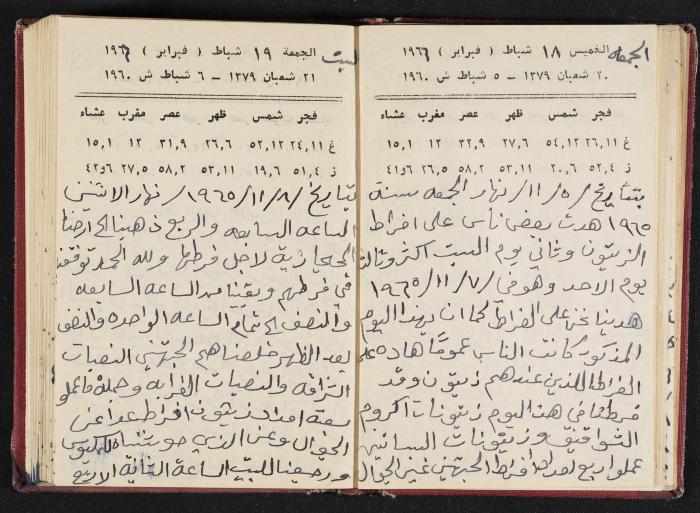 الجمعه
الخميس ١٨ شباط ( فبراير ) ١٩٦٦
٢٠ شعبان ١٣٧٩ – ٥ شباط ش ١٩٦٠
فجر شمس ظهر عصر مغرب عشاء
غ ٢٦,١١ ٥٤,١٢ ٢٧,٦ ٣٢,٩ ١٢ ١٥,١
ز ٥٢,٤ ٢٠,٦ ٥٣,١١ ٥٨,٢ ٢٦,٥ ٤١و٦
بتاريخ /٥/ ١١/ نهار الجمعه سنة
١٩٦٥ هدت بعض ناس على افراط
الزيتون وثاني يوم السبت اكثر وثالث
يوم الاحد وهو في /٧/ ١١/ ١٩٦٥
هدينا نحن على الفراط كما ان بهذا اليوم
المذكور كانت الناس عموما هاده على
الفراط للذين عندهم زيتون وقد
فرطنا في هذا اليوم زيتونات اكروم
وزيتونات
عملو اربع امداد افراط الجهتين غير الجوال
السبت
الجمعة ١٩ شباط ( فبراير ) ١٩٦٦
٢١ شعبان ١٣٧٩ – ٦ شباط ش ١٩٦٠
فجر شمس ظهر عصر مغرب عشاء
غ ٢٤,١١ ٥٢,١٢ ٢٦,٦ ٣١,٩ ١٢ ١٥,١
ز ٥١,٤ ١٩,٦ ٥٣,١١ ٥٨,٢ ٢٧,٥ ٤٢و٦
بتاريخ /٨/ ١١/ ١٩٦٥/ نهار الاثنين
الساعه السابعه والربع ذهبنا الى ارضنا
الحجازية لاجل فرطها ولله الحمد توفقنا
في فرطهم وبقنا من الساعه السابعه
والنصف الى تمام الساعه الواحده والنصف
بعد الظهر خلصناهم الجهتين النصبات
والنصبات وحملة ما عملو
سته امداد زيتون افراط عدا عن
الجوال وعن الذي
ورجعنا للبيت الساعة الثانية الا ربع